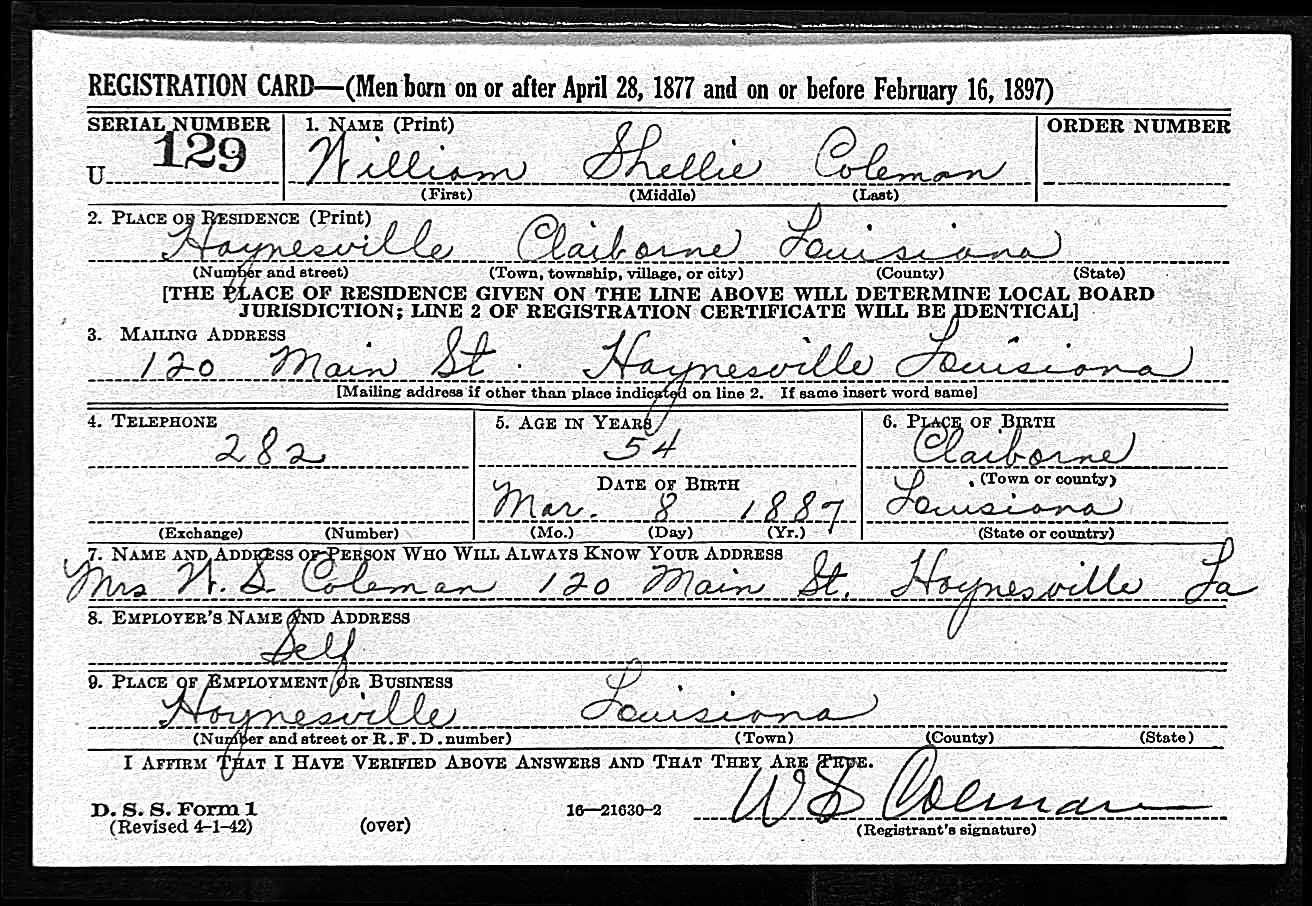 REGISTRATION CARD—(Men born on or after April 28, 1877 and on or before February 16, 1897)
SERIAL NUMBER 1. NAME (Print) ORDER NUMBER
U 129 William Shellie Coleman
(First) (Middle) (Last)
2. PLACE OF RESIDENCE (Print)
Haynesville Claiborne Louisiana
(Number and street) (Town, township, village, or city) (County) (State)
[THE PLACE OF RESIDENCE GIVEN ON THE LINE ABOVE WILL DETERMINE LOCAL BOARD
JURISDICTION; LINE 2 OF REGISTRATION CERTIFICATE WILL BE IDENTICAL]
3. MAILING ADDRESS
120 Main St. Haynesville Louisiana
[Mailing address if other than place indicated on line 2. If same insert word same]
4. TELEPHONE 5. AGE IN YEARS 6. PLACE OF BIRTH
282 54 Claiborne
DATE OF BIRTH (Town or county)
Mar. 8 1887 Louisiana
(Exchange) (Number) (Mo.) (Day) (Yr.) (State or country)
7. NAME AND ADDRESS OF PERSON WHO WILL ALWAYS KNOW YOUR ADDRESS
Mrs W. S. Coleman 120 Main St. Haynesville La
8. EMPLOYER'S NAME AND ADDRESS
Self
9. PLACE OF EMPLOYMENT OR BUSINESS
Haynesville Louisiana
(Number and street or R. F. D. number) (Town) (County) (State)
I AFFIRM THAT I HAVE VERIFIED ABOVE ANSWERS AND THAT THEY ARE TRUE.
D. S. S. Form 1 16—21630-2 W S Coleman
(Revised 4-1-42) (over) (Registrant's signature)